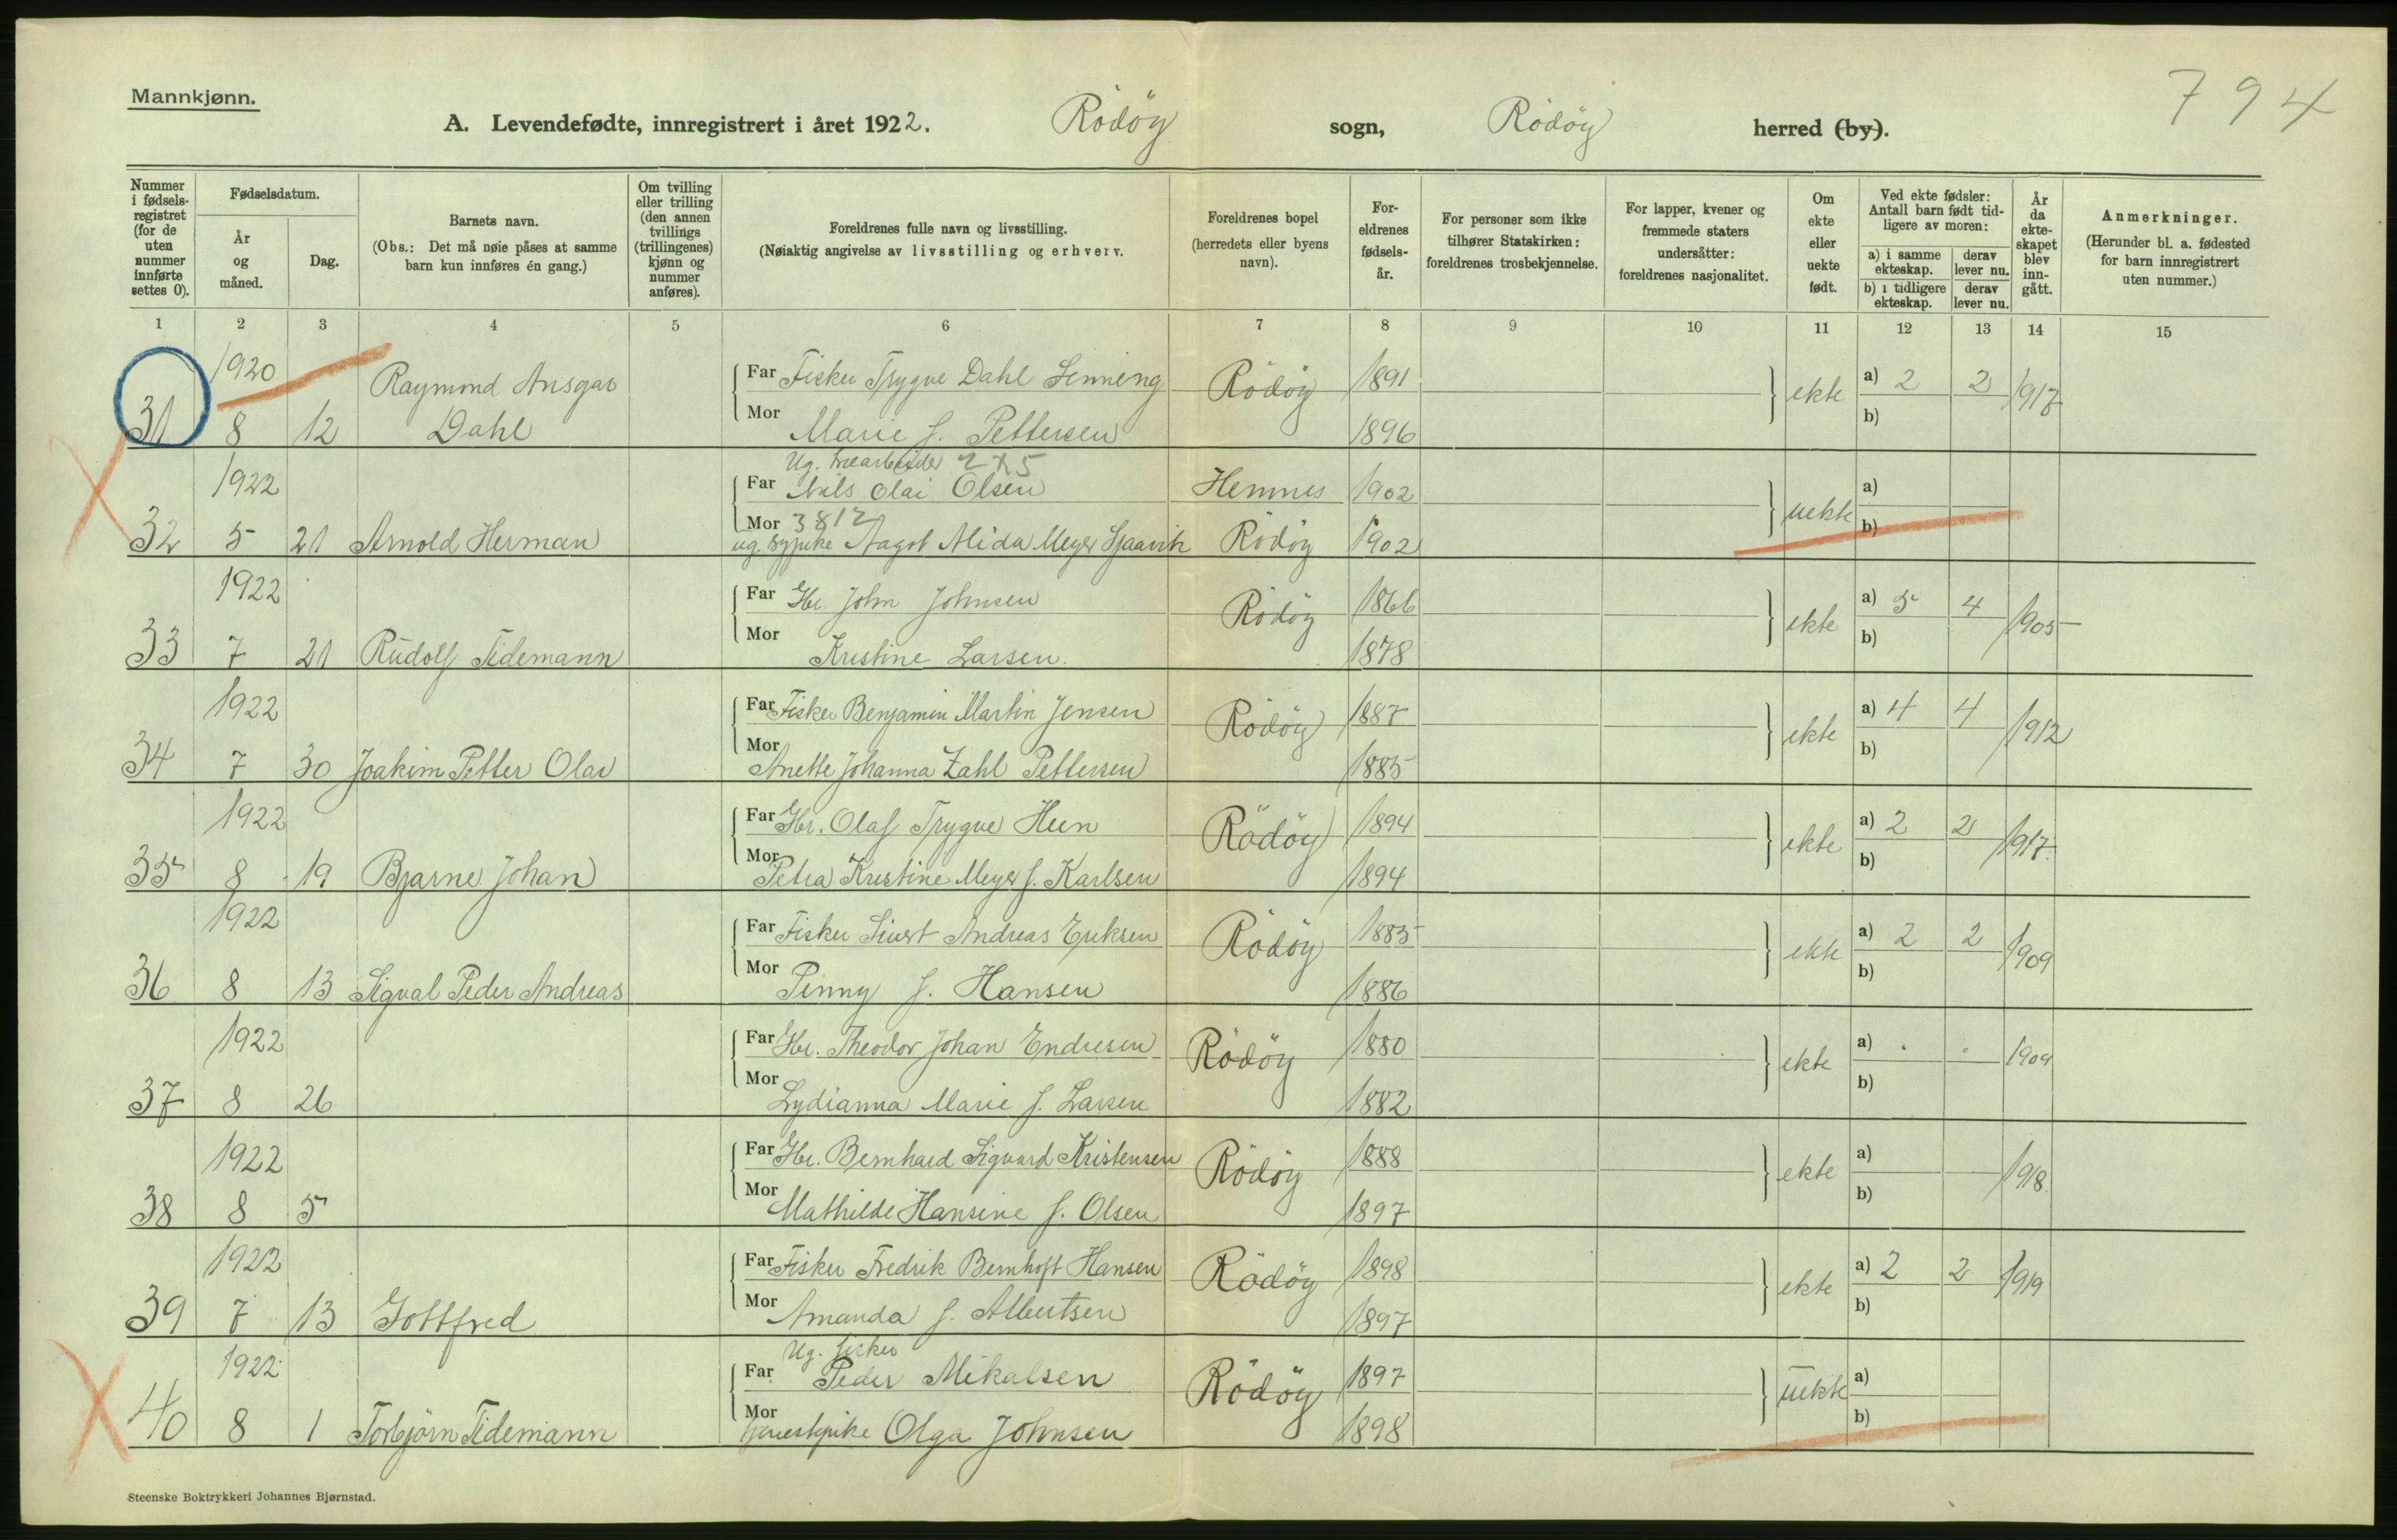 Mannkjønn.
794
A. Levendefødte, innregistrert i året 1922. Rödöy sogn, Rödöy herred (by).
Nummer i fødselsregistret (for de uten nummer innførte settes 0).
Fødselsdatum.
År og måned.
Dag.
Barnets navn.
(Obs.: Det må nøie påses at samme barn kun innføres én gang.)
Om tvilling eller trilling (den annen tvillings (trillingenes) kjønn og nummer anføres).
Foreldrenes fulle navn og livsstilling.
(Nøiaktig angivelse av livsstilling og erhverv.
Foreldrenes bopel (herredets eller byens navn).
Foreldrenes fødselsår.
For personer som ikke tilhører Statskirken: foreldrenes trosbekjennelse.
For lapper, kvener og fremmede staters undersåtter: foreldrenes nasjonalitet.
Om ekte eller uekte født.
Ved ekte fødsler: Antall barn født tidligere av moren:
a) i samme ekteskap. derav lever nu.
b) i tidligere ekteskap. derav lever nu.
År da ekteskapet blev inngått.
Anmerkninger.
(Herunder bl. a. fødested for barn innregistrert uten nummer.)
1 2 3 4 5 6 7 8 9 10 11 12 13 14 15
1920 Raymond Ansgar Far Fisker Trygve Dahl Rödöy 1891 ekte a) 2 2 1917
31 8 12 Dahl Mor Marie f. Pettersen 1896 b)
Ug. 2 X 5
1922 Far Nils Olai Olsen Hemnes 1902 uekte a)
Mor 3812
32 5 21 Arnold Herman ug. Aagot Alida Meyer Rödöy 1902 b)
1922 Far Gbr. John Johnsen Rödöy 1866 ekte a) 5 4 1905
33 7 21 Rudolf Tidemann Mor Kristine Larsen 1878 b)
1922 Far Fisker Benjamin Martin Jensen Rödöy 1887 ekte a) 4 4 1912
34 7 30 Joakim Petter Olav Mor Anette Johanna Zahl Pettersen 1885 b)
1922 Far Gbr. Olaf Trygve Heen Rödöy 1894 ekte a) 2 2 1917
35 8 19 Bjarne Johan Mor Petra Kristine Meyer f. Karlsen 1894 b)
1922 Far Fisker Sivert Andreas Eriksen Rödöy 1885 ekte a) 2 2 1909
36 8 13 Sigval Peder Andreas Mor Penny f. Hansen 1886 b)
1922 Far Gbr. Theodor Johan Endresen Rödöy 1880 ekte a) 1909
37 8 26 Mor Lydianna Marie f. Larsen 1882 b)
1922 Far Gbr. Bernhard Sigvard Kristensen Rödöy 1888 ekte a) 1918
38 8 5 Mor Mathilde Hansine f. Olsen 1897 b)
1922 Far Fisker Fredrik Bernhoft Hansen Rödöy 1898 ekte a) 2 2 1919
39 7 13 Gottfred Mor Amanda f. Albertsen 1897 b)
Ug. fisker
1922 Far Peder Mikalsen Rödöy 1897 uekte a)
40 8 1 Torbjörn Tidemann Mor tjenestepike Olga Johnsen 1898 b)
Steenske Boktrykkeri Johannes Bjørnstad.